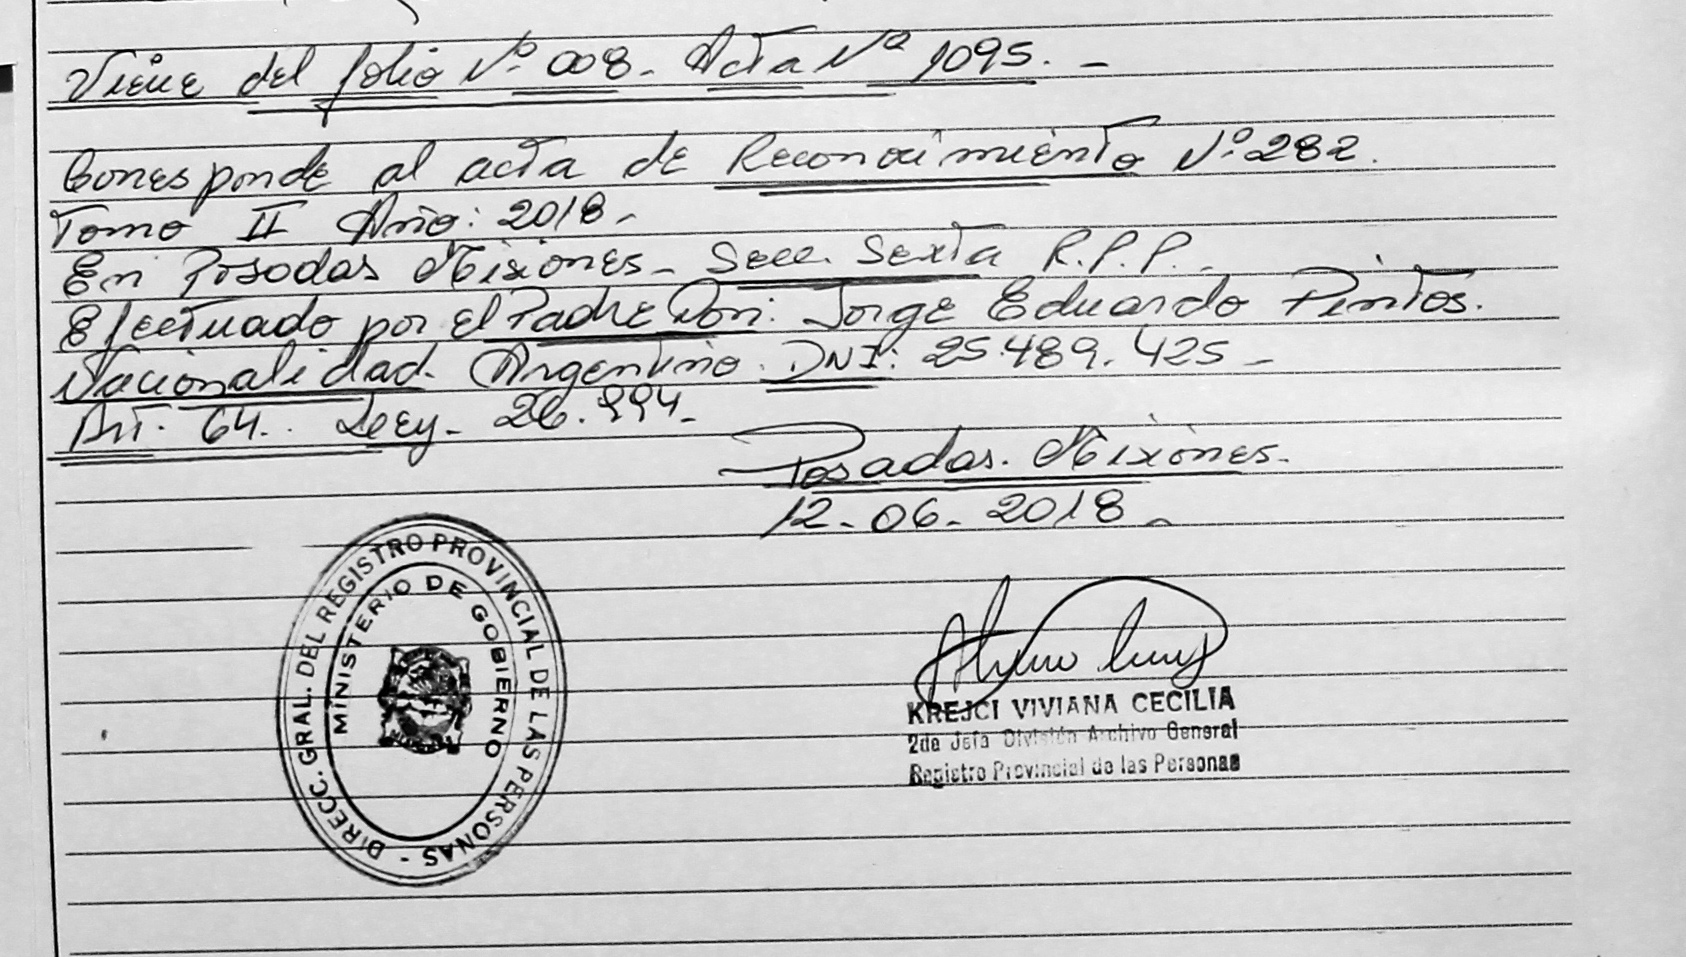 Viene del folio Nº 008. Acta Nº 1095. -
Corresponde al acta de Reconocimiento Nº 282.
Tomo II Año: 2018.
En Posadas Misiones - Secc. Sexta R.P.P. -
Efectuado por el Padre Don: Jorge Eduardo Pintos.
Nacionalidad. Argentino. DNI: 25.489.425 -
Art. 64. Ley - 26.994. -
Posadas. Misiones.
12-06-2018 -
DIRECC. GRAL. DEL REGISTRO PROVINCIAL DE LAS PERSONAS -
MINISTERIO DE GOBIERNO
KREJCI VIVIANA CECILIA
2da Jefa División Archivo General
Registro Provincial de las Personas